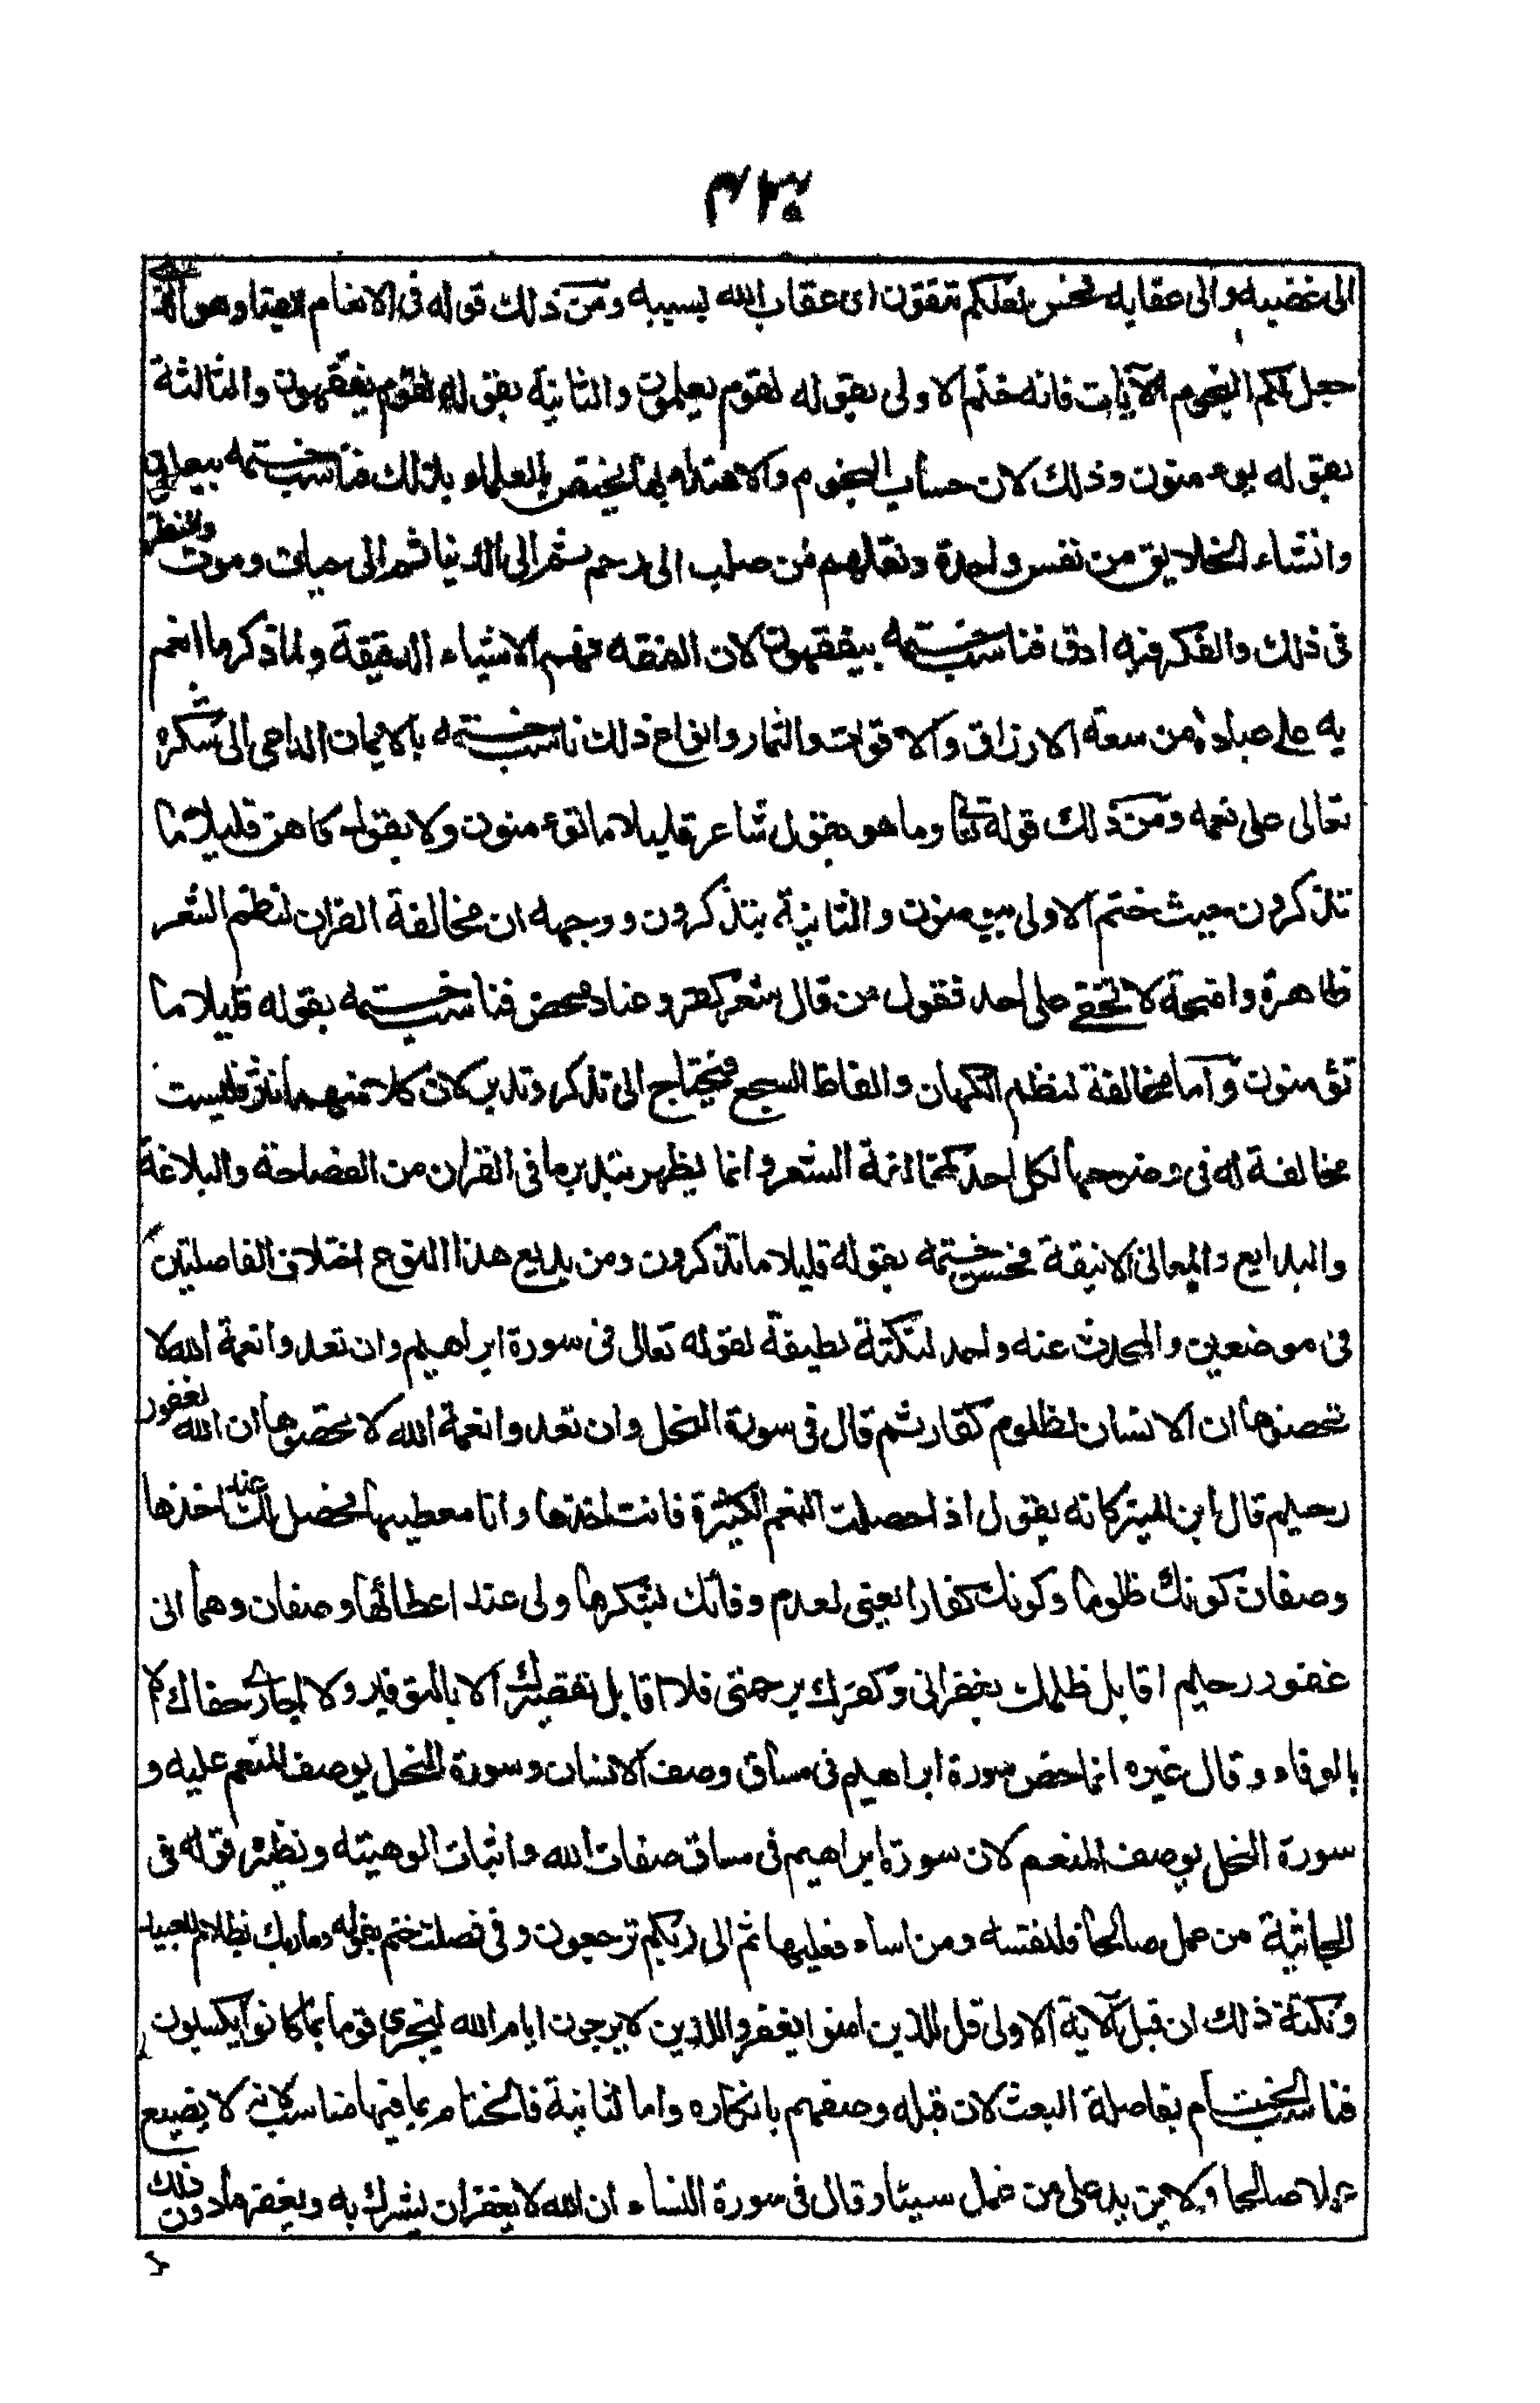 الى غضبه والى عقابه فحسن لعلكم تتقون اى عقاب الله بسببه ومن ذلك قوله فى الانعام ايضا وهو الذى
جعل لكم النجوم الآيات فانه ختم الاولى بقوله لقوم يعلمون والثانية بقوله لقوم يفقهون والثالثة
بقوله يومنون وذلك لان حساب النجوم والاهتداء بها يختص بالعلماء بذلك فناسب ختمه بيعلمون
وانشاء الخلايق من نفس واحدة ونقلهم من صلب الى رحم ثم الى الدنيا ثم الى حيات وموت والنظر
فى ذلك والفكر فيه ادق فناسب ختمه بيفقهون لان الفقه فهم الاشياء الدقيقة ولما ذكر ما انعم
به على عباده من سعة الارزاق والاقوات والثمار وانواع ذلك ناسب ختمه بالايمان الداعى الى شكره
تعالى على نعمه ومن ذلك قوله تعا وما هو بقول شاعر قليلا ما تؤمنون ولا بقول كاهن قليلا ما
تذكرون حيث ختم الاولى بيومنون والثانية بتذكرون ووجهه ان مخالفة القران لنظم الشعر
ظاهرة واضحة لا تخفى على احد فقول من قال شعر كفر وعناد محض فناسب ختمه بقوله قليلا ما
تؤمنون وأما مخالفة لنظم الكهان والفاظ السجع فيحتاج الى تذكر وتدبر لان كلا منهما نثر فليست
مخالفة له فى وضوحها لكل احد كمخالفة الشعر وانما يظهر بتدبر ما فى القران من الفصاحة والبلاغة
والبدايع والمعانى الانيقة فحسن ختمه بقوله قليلا ما تذكرون ومن بديع هذا النوع اختلاف الفاصلتين
فى موضعين والمحدث عنه واحد لنكتة لطيفة لقوله تعالى فى سورة ابراهيم وان تعدوا نعمة الله لا
تحصوها ان الانسان لظلوم كفار ثم قال فى سورة النحل وان تعدوا نعمة الله لا تحصوها ان الله لغفور
رحيم قال ابن المنير كانه يقول اذا حصلت النعم الكثيرة فانت اخذها وانا معطيها فحصل لك عند اخذها
وصفان كونك ظلوما وكونك كفارا يعنى لعدم وفائك لشكرها ولى عند اعطائها وصفان وهما انى
غفور رحيم اقابل ظلمك بغفرانى وكفرك برحمتى فلا اقابل تقصيرك الا بالتوقير ولا اجازى جفاك الا
بالوفاء وقال غيره انما خص سورة ابراهيم فى مساق وصف الانسان وسورة النحل بوصف المنعم عليه و
سورة النحل بوصف المنعم لان سورة ابراهيم فى مساق صفات الله واثبات الوهيته ونظيره قوله فى
الجاثية من عمل صالحا فلنفسه ومن اساء فعليها ثم الى ربكم ترجعون وفى فصلت ختم بقوله وما ربك بظلام للعبيد
ونكتة ذلك ان قبل الآية الاولى قل للذين امنوا يغفروا للذين لا يرجون ايام الله ليجزى قوما بما كانوا يكسبون
فناسب الختام بفاصلة البعث لان قبله وصفهم بانكاره واما الثانية فالختام بما فيها مناسب لانه لا يضيع
عملا صالحا ولا يزيد على من عمل سيئا وقال فى سورة النساء ان الله لا يغفر ان يشرك به ويغفر ما دون ذلك